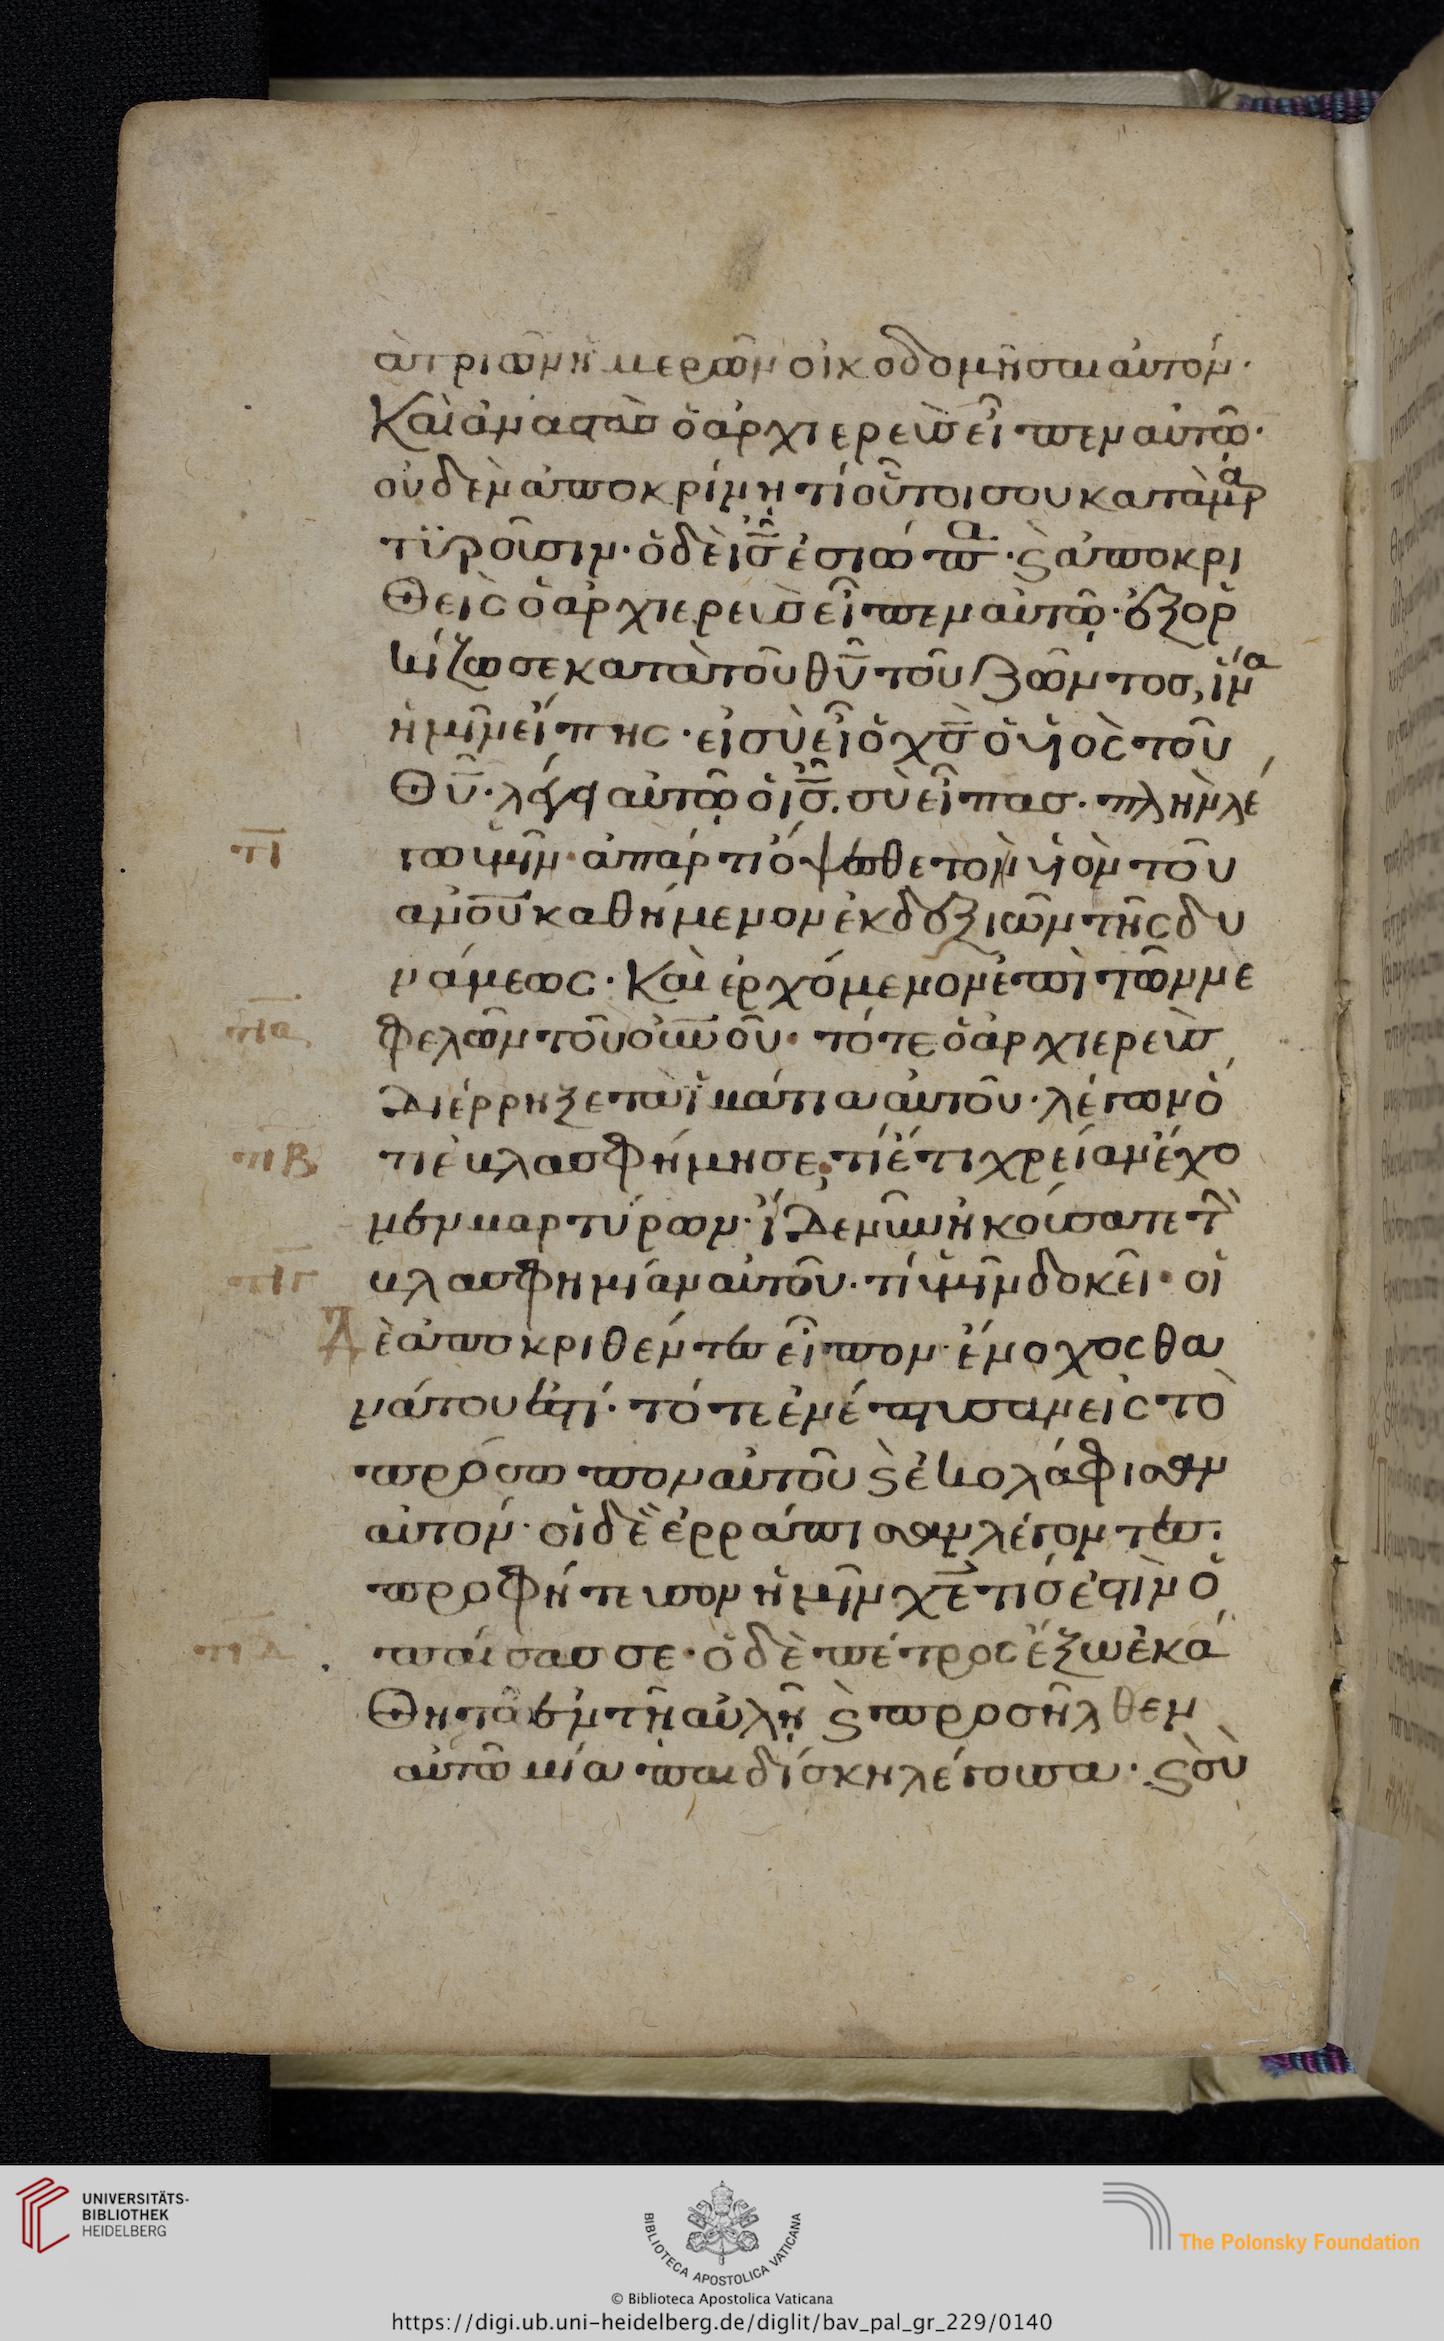 ὰ τριῶν ἡμερῶν οἰκοδομῆσαι αὐτόν·
Καὶ ἀναστὰς ὁ ἀρχιερεὺς εἶπεν αὐτῷ·
οὐδὲν ἀποκρίνῃ τί οὗτοι σου καταμα̈ρ
τϋροῦσιν· ὁ δὲ ις̅ ἐσιώπα· ϛ̀ ἀποκρι
θεὶς ὁ ἀρχιερεὺς εἶπεν αὐτῷ· ἐξορ
κίζω σε κατὰ τοῦ θυ̅ τοῦ ζῶντος, ἵνα
ἡμῖν εἴπης· εἰ σὺ εἶ ὁ χς̅ ὁ υἱὸς τοῦ
θυ̅· λέγει αὐτῷ ὁ ις̅. σὺ εἶπας· πλὴν λέ
πι
γω ὑμῖν· ἀπάρτι ὄψεσθε τὸν υἱὸν τοῦ
ανο̅υ̅ καθήμενον ἐκ δεξιῶν τῆς δυ
νάμεως· Καὶ ἐρχόμενον ἐπὶ τῶν νε
πια
φελῶν τοῦ οὐνοῦ· τότε ὁ ἀρχιερεὺς
Διέρρηξε τὰ ἱμάτια αὐτοῦ· λέγων ὅ
πιβ
τι ἐβλασφήμησε· τί ἔτι χρείαν ἔχο
μεν μαρτύρων· ἴδε νῦν ἠκούσατε τὴν
πιγ
βλασφημίαν αὐτοῦ· τί ὑμῖν δοκεῖ· οἱ
Δὲ ἀποκριθέντες εἶπον· ἔνοχος θα
νάτου ἐστί· τότε ἐνέπτυσαν εἰς τὸ
πρόσωπον αὐτοῦ ϛ̀ ἐκολάφισαν
αὐτόν· οἱ δὲ ἐρράπισαν λέγοντες·
προφήτευσον ἡμῖν χε̅ τίς ἐστιν ὁ
πιδ
παίσας σε· ὁ δὲ πέτρος ἔξω ἐκά
θητο ἐν τῇ αὐλῇ ϛ̀ προσῆλθεν
αὐτῷ μία παιδίσκη λέγουσα· ϛ̀ σὺ
UNIVERSITÄTS-
BIBLIOTHEK
HEIDELBERG
BIBLIOTECA APOSTOLICA VATICANA
The Polonsky Foundation
© Biblioteca Apostolica Vaticana
https://digi.ub.uni-heidelberg.de/diglit/bav_pal_gr_229/0140